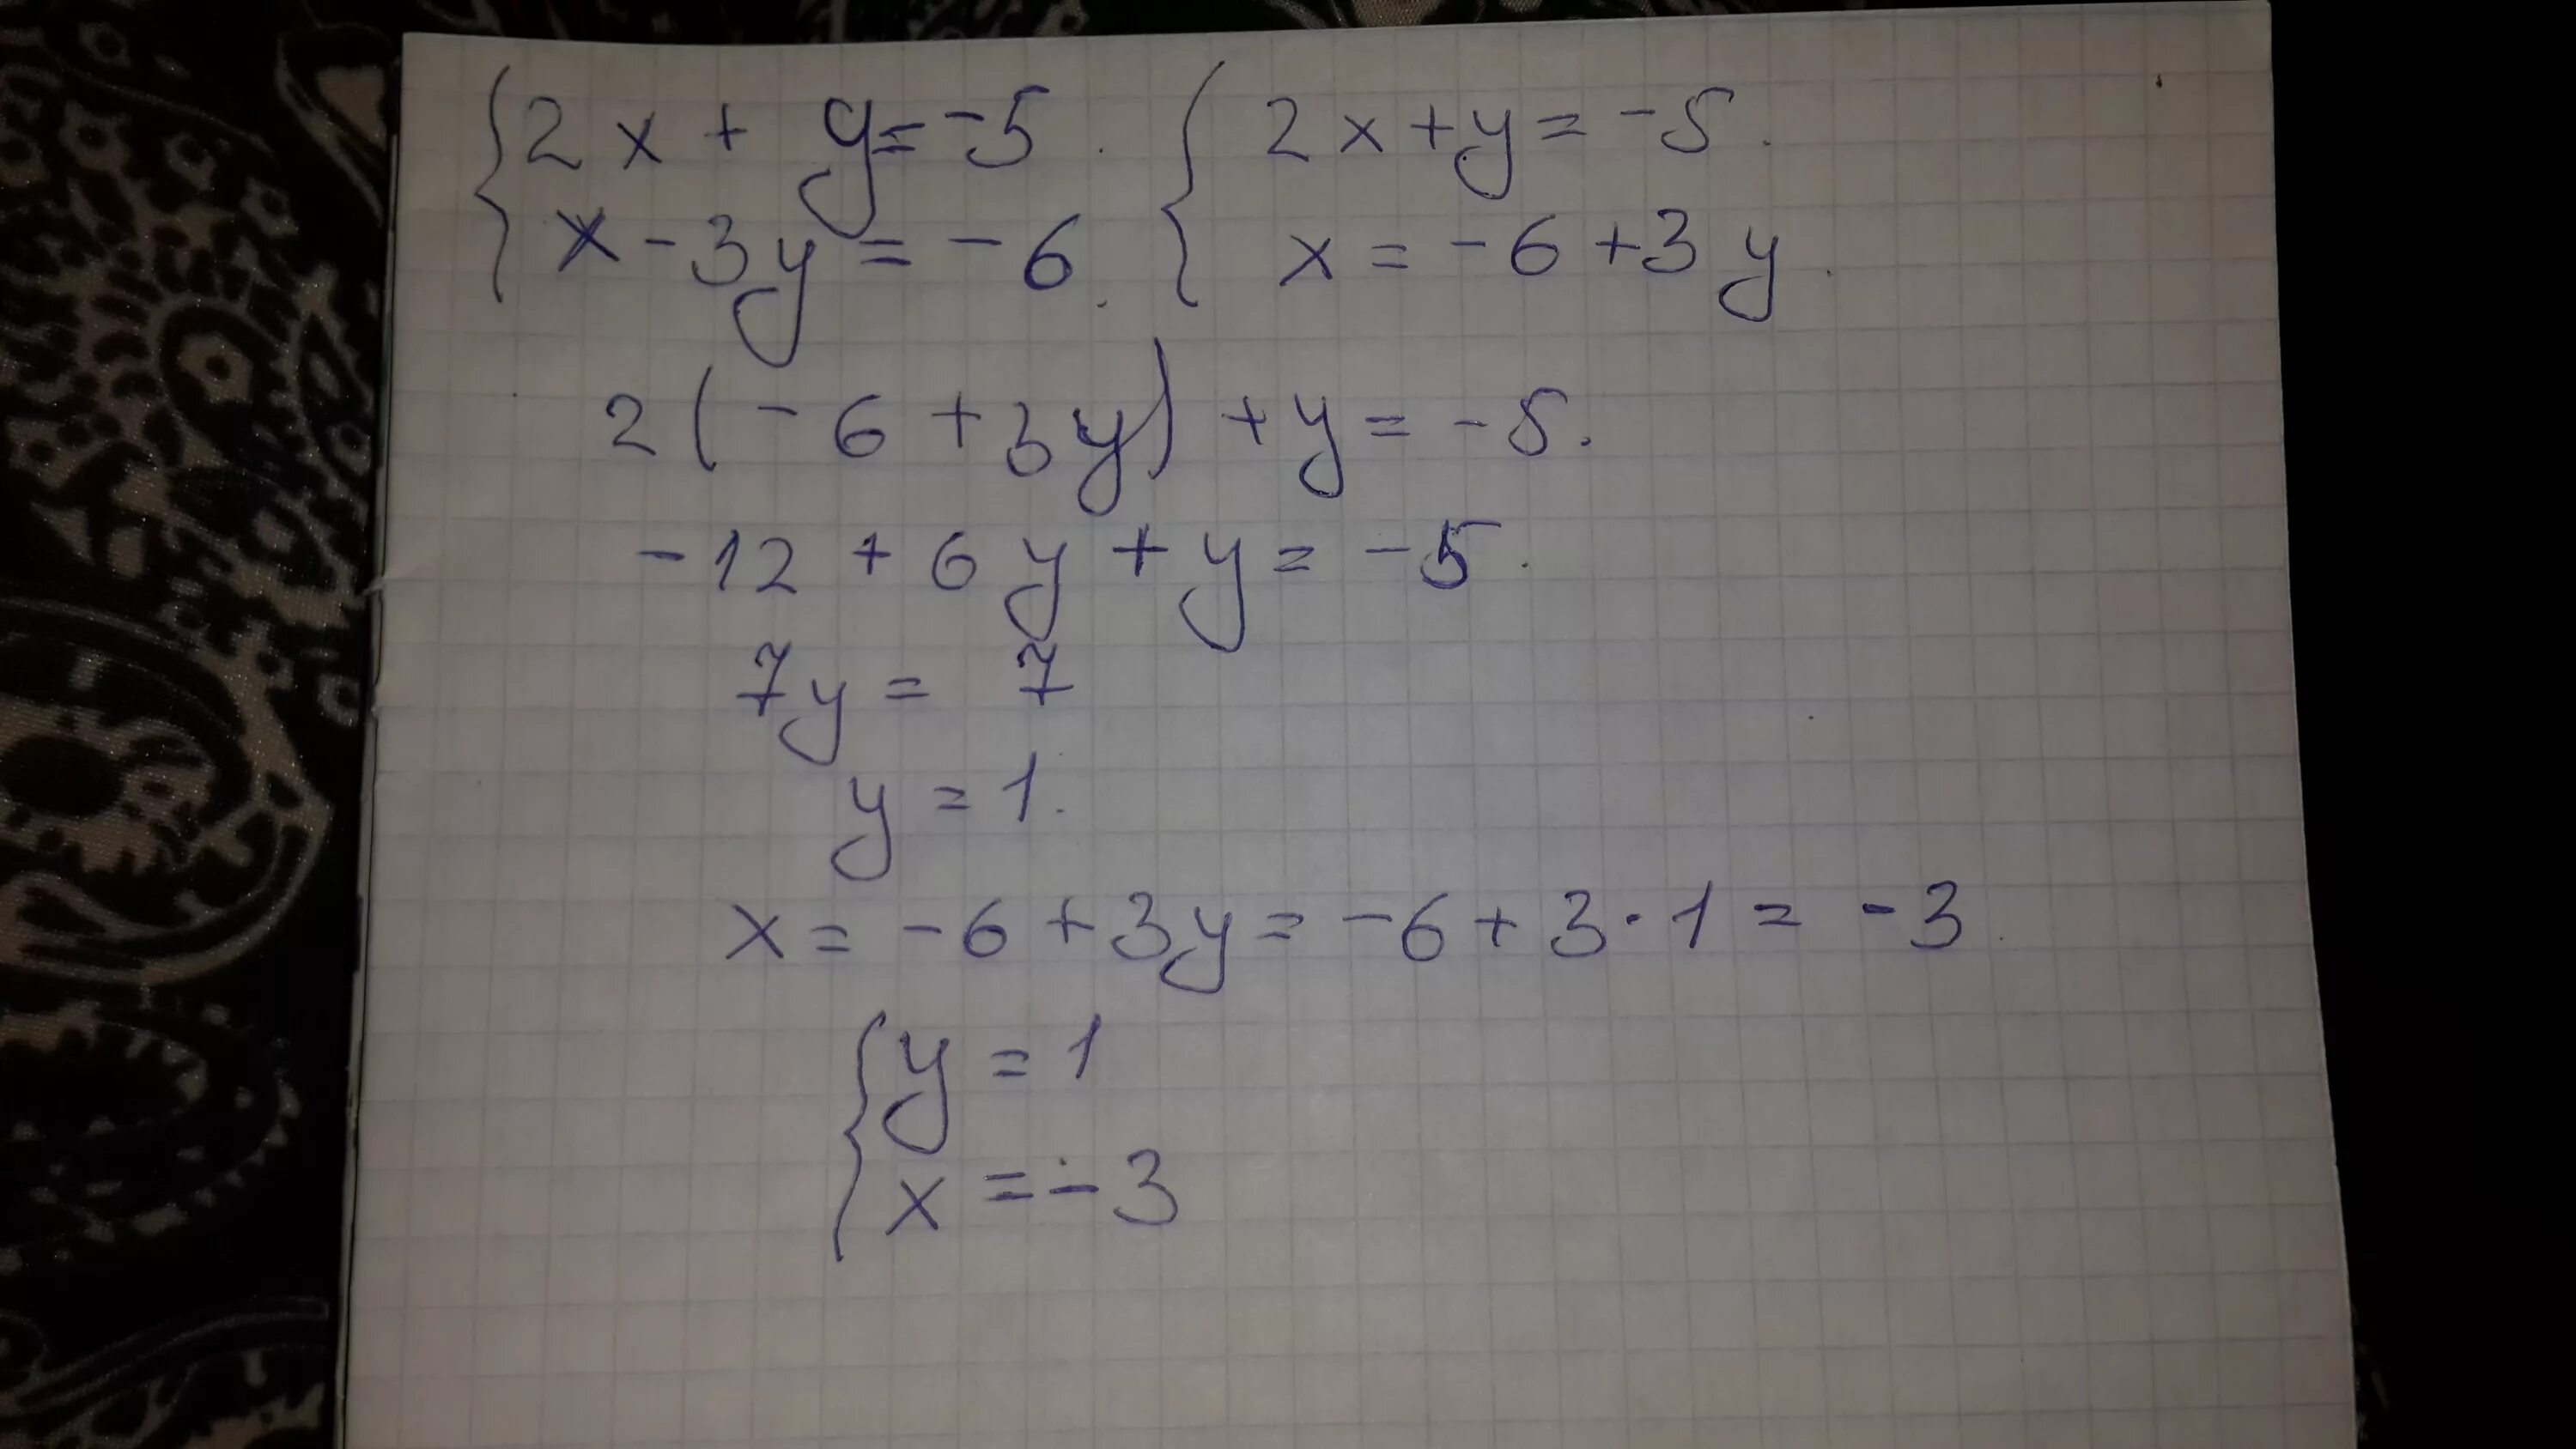 { 2x + y = -5. { 2x + y = -5.
x - 3y = -6. x = -6 + 3y.
2(-6 + 3y) + y = -5.
-12 + 6y + y = -5.
7y = 7
y = 1.
x = -6 + 3y = -6 + 3 · 1 = -3.
{ y = 1
x = -3